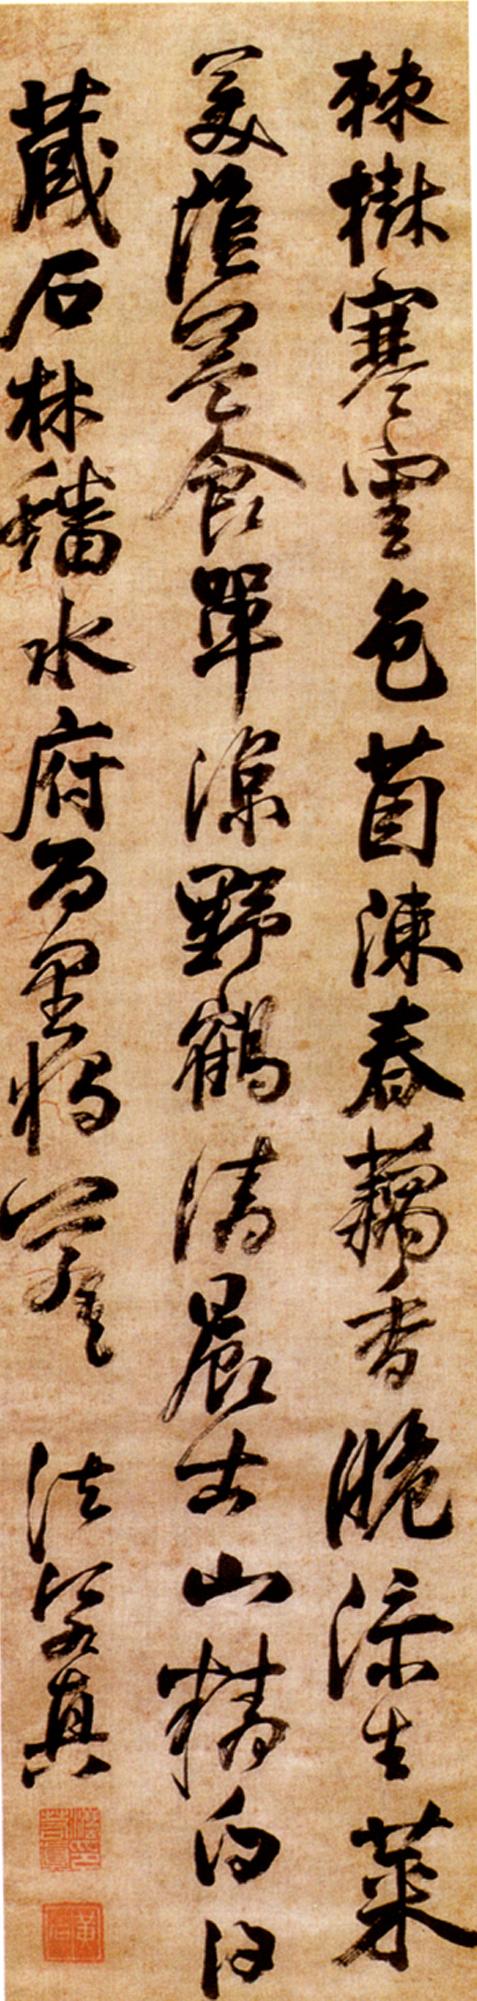 棘樹寒雲色茵蔯春藕香脆添生菜
美蔭益食單涼野鶴清晨出山精白日
藏石林蟠水府百里獨蒼蒼 法若真